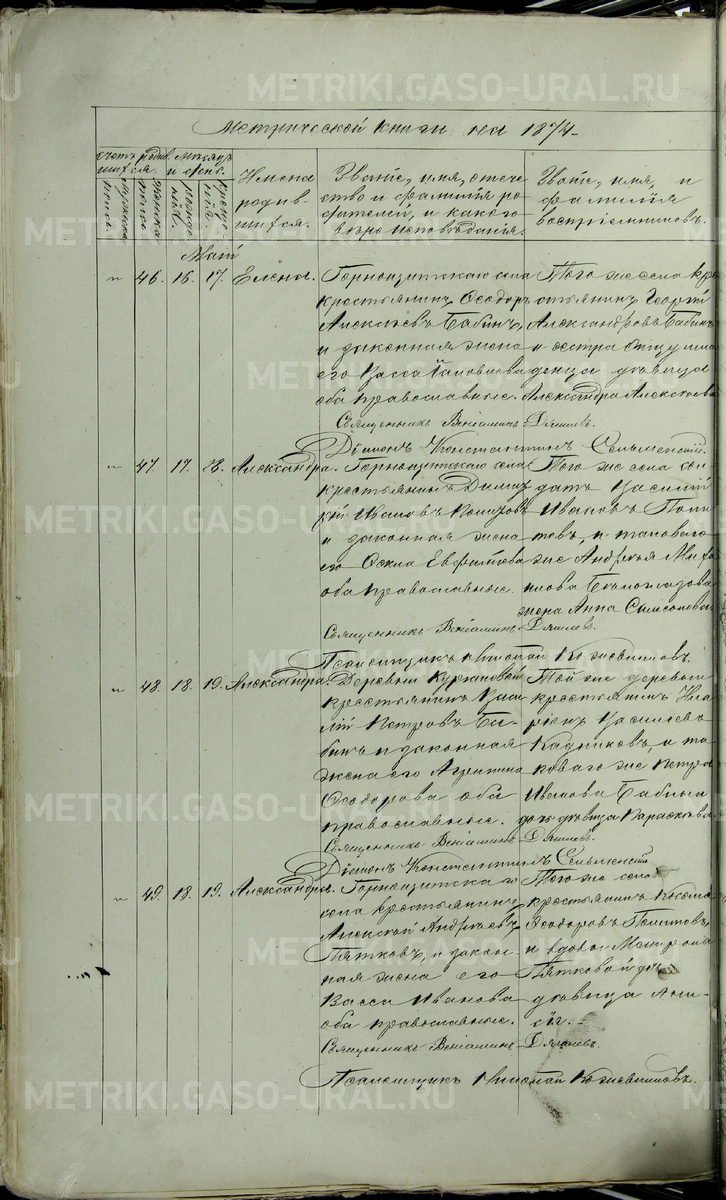 METRIKI.GASO-URAL.RU
Метрической книги на 1874.
Счетъ родив-
шихся.
Мужска
полъ.
Женска
полъ.
Мѣсяцъ
и день.
рожде
нія.
креще
нія.
Имена
родив-
шихся.
Званіе, имя, отече
ство и фамилія ро
дителей, и какого
вѣроисповѣданія.
Званіе, имя, и
фамилія
воспріемниковъ.
Май
" 46. 16. 17. Елена.
Горнощитскаго села
крестьянинъ Ѳеодоръ
Алексѣевъ Бабинъ,
и законная жена
его Васса
оба православные.
Того же села кре
стьянинъ Георгій
Александровъ Бабинъ
и сестра отцу мла
денца дѣвица
Александра Алексѣева
Священникъ Веніаминъ Дягилевъ.
Діаконъ Константинъ Сельменскій.
" 47. 17. 23. Александра.
Горнощитскаго села
крестьянинъ Дими
трій Ивановъ
и законная жена
его Ѳекла Евфимова
оба православные.
Того же села сол
датъ Василій
Ивановъ
и таковаго
же Андрея
жена Анна Самсонова.
Священникъ Веніаминъ Дягилевъ.
Псаломщикъ Николай Кожевниковъ.
" 48. 18. 19. Александра.
Деревни Кургановой
крестьянинъ Васи
лій Петровъ Ба-
бинъ и законная
жена его Агрипина
Ѳеодорова оба
православные.
Той же деревни
крестьянинъ Ила
ріонъ Васильевъ
Кадниковъ, и та
коваго же Петра
Иванова Бабина
дочь дѣвица Параскева.
Священникъ Веніаминъ Дягилевъ.
Діаконъ Константинъ Сельменскій
" 49. 18. 19. Александра.
Горнощитскаго
села крестьянинъ
Алексѣй Андреевъ
Пятковъ, и закон-
ная жена его
Васса Иванова
оба православные.
Того же села
крестьянинъ Косьма
Ѳеодоровъ
и вдовы Матроны
Пятковой дочь
дѣвица Ани-
сія.
Священникъ Веніаминъ Дягилевъ.
Псаломщикъ Николай Кожевниковъ.